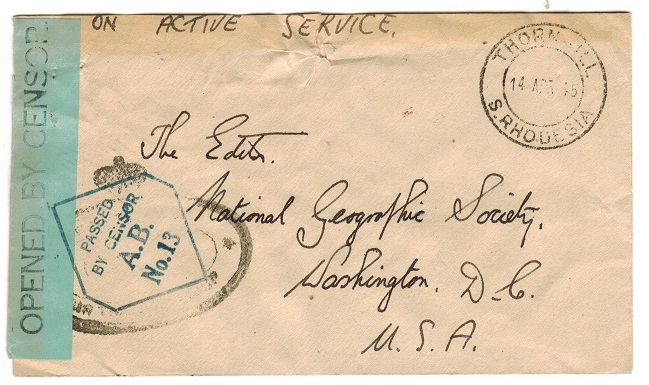 ON ACTIVE SERVICE.
OPENED BY CENSOR.
THORNHILL
14 APR 45
S. RHODESIA
The Editor.
National Geographic Society,
Washington. D.C.
U.S.A.
PASSED
BY CENSOR
A.B.
No. 13